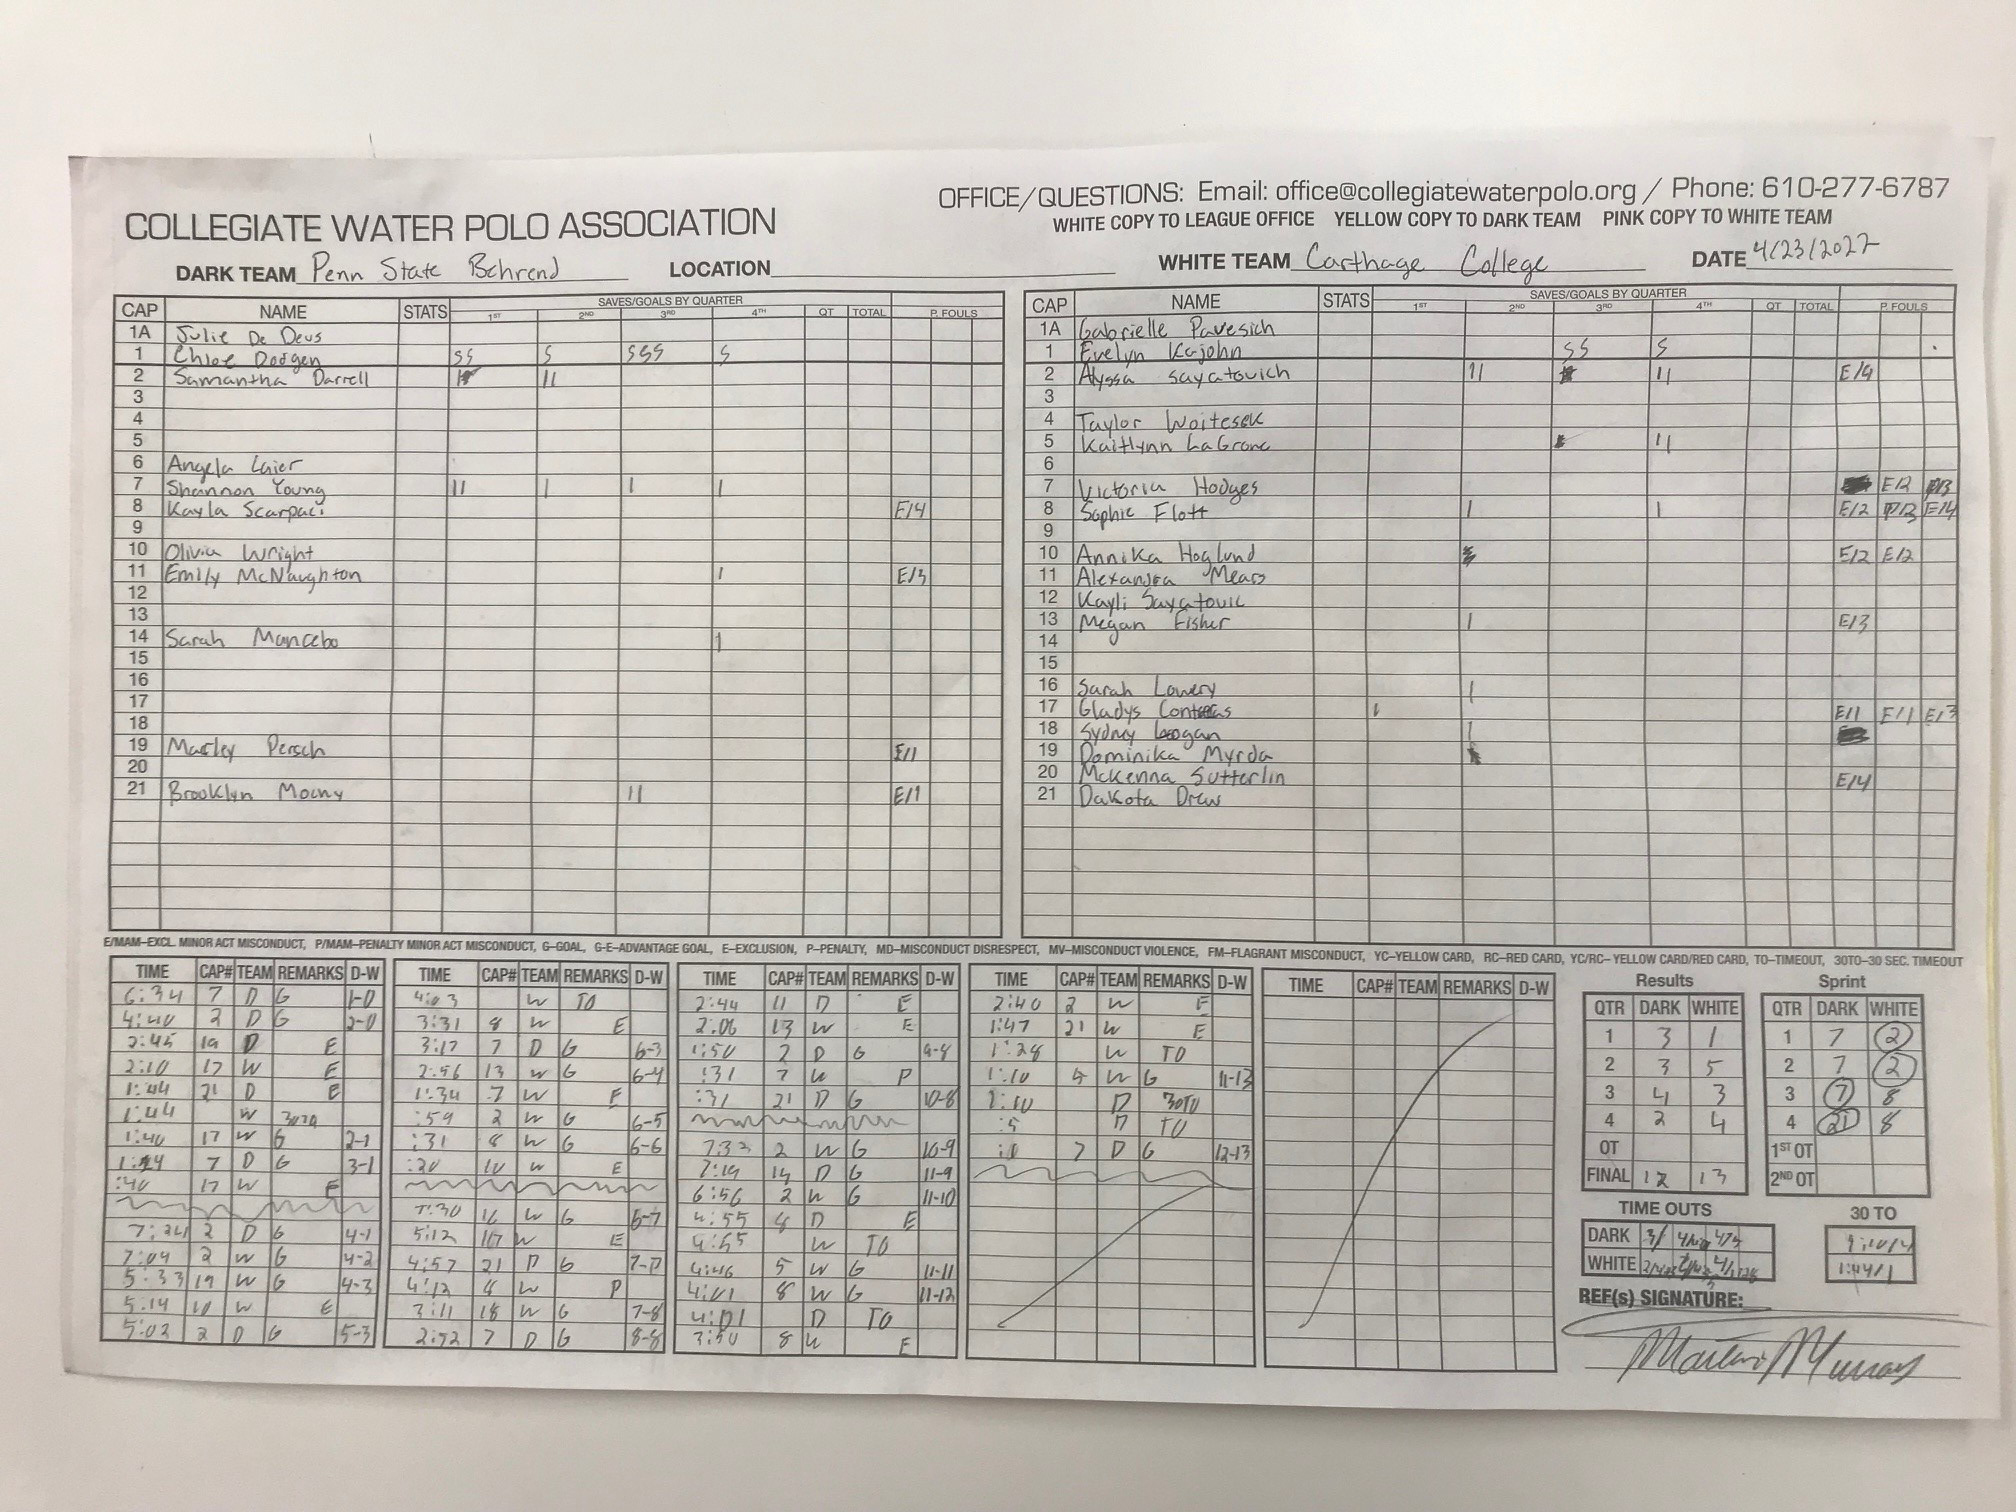 OFFICE/QUESTIONS: Email: office@collegiatewaterpolo.org / Phone: 610-277-6787
COLLEGIATE WATER POLO ASSOCIATION
WHITE COPY TO LEAGUE OFFICE YELLOW COPY TO DARK TEAM PINK COPY TO WHITE TEAM
DARK TEAM Penn State Behrend LOCATION
WHITE TEAM Carthage College DATE 4/23/2022
CAP NAME STATS SAVES/GOALS BY QUARTER 1ST 2ND 3RD 4TH OT TOTAL P. FOULS
1A Julie De Deus
1 Chloe Dodgen SS S SSS S
2 Samantha Darrell II
3
4
5
6 Angela Laier
7 Shannon Young II I I I
8 Kayla Scarpaci E/4
9
10 Olivia Wright
11 Emily McNaughton I E/3
12
13
14 Sarah Mancebo I
15
16
17
18
19 Marley Persch E/1
20
21 Brooklyn Mocny II E/1
CAP NAME STATS SAVES/GOALS BY QUARTER 1ST 2ND 3RD 4TH OT TOTAL P. FOULS
1A Gabrielle Pavesich
1 Evelyn Kajohn SS S
2 Alyssa Sayatovich II II E/4
3
4 Taylor Woitesek
5 Kaitlynn LaGrone
6
7 Victoria Hodges E/2 P/3
8 Sophie Flott I I E/2 P/3 E/4
9
10 Annika Hoglund E/2 E/2
11 Alexandra Mears
12 Kayli Sayatovic
13 Megan Fisher I E/3
14
15
16 Sarah Lowery I
17 Gladys Contreras I E/1 E/1 E/3
18 Sydney Logan I
19 Dominika Myrda
20 Mckenna Sutterlin E/4
21 Dakota Drew
E/MAM–EXCL. MINOR ACT MISCONDUCT, P/MAM–PENALTY MINOR ACT MISCONDUCT, G–GOAL, G-E–ADVANTAGE GOAL, E–EXCLUSION, P–PENALTY, MD–MISCONDUCT DISRESPECT, MV–MISCONDUCT VIOLENCE, FM–FLAGRANT MISCONDUCT, YC–YELLOW CARD, RC–RED CARD, YC/RC–YELLOW CARD/RED CARD, TO–TIMEOUT, 30TO–30 SEC. TIMEOUT
TIME CAP# TEAM REMARKS D-W
6:34 7 D G 1-0
4:40 2 D G 2-0
2:45 19 D E
2:10 17 W E
1:44 21 D E
1:44 W 30TO
1:40 17 W G 2-1
7 D G 3-1
:40 17 W E
7:24 2 D G 4-1
7:04 2 W G 4-2
5:33 19 W G 4-3
5:14 10 W E
5:02 2 D G 5-3
TIME CAP# TEAM REMARKS D-W
4:03 W TO
3:31 8 W E
3:17 7 D G 6-3
2:56 13 W G 6-4
1:34 7 W E
:59 2 W G 6-5
:31 8 W G 6-6
:20 10 W E
7:30 16 W G 6-7
5:12 17 W E
4:57 21 D G 7-7
4:12 8 W P
3:11 18 W G 7-8
7 D G 8-8
TIME CAP# TEAM REMARKS D-W
2:44 11 D E
2:06 13 W E
1:50 2 D G 9-8
:31 7 W P
:31 21 D G 10-8
7:33 2 W G 10-9
7:19 14 D G 11-9
6:56 2 W G 11-10
4:55 8 D E
4:55 W TO
4:46 5 W G 11-11
4:01 8 W G 11-12
4:01 D TO
8 W E
TIME CAP# TEAM REMARKS D-W
2:40 2 W E
1:47 21 W E
1:28 W TO
1:10 5 W G 11-13
1:10 D 30TO
:5 D TO
7 D G 12-13
TIME CAP# TEAM REMARKS D-W
Results
QTR DARK WHITE
1 3 1
2 3 5
3 4 3
4 2 4
OT
FINAL 12 13
Sprint
QTR DARK WHITE
1 7 2
2 7 2
3 7 8
4 21 8
1ST OT
2ND OT
TIME OUTS
DARK
WHITE
30 TO
1:10/4
1:44/1
REF(s) SIGNATURE: